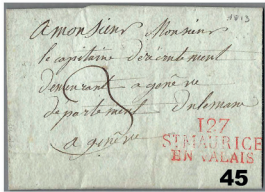 1813
a monsieur Monsieur
le capitaine de recrutement
demeurant a genève
departement du leman
a genêve
127
ST MAURICE
EN VALAIS
45